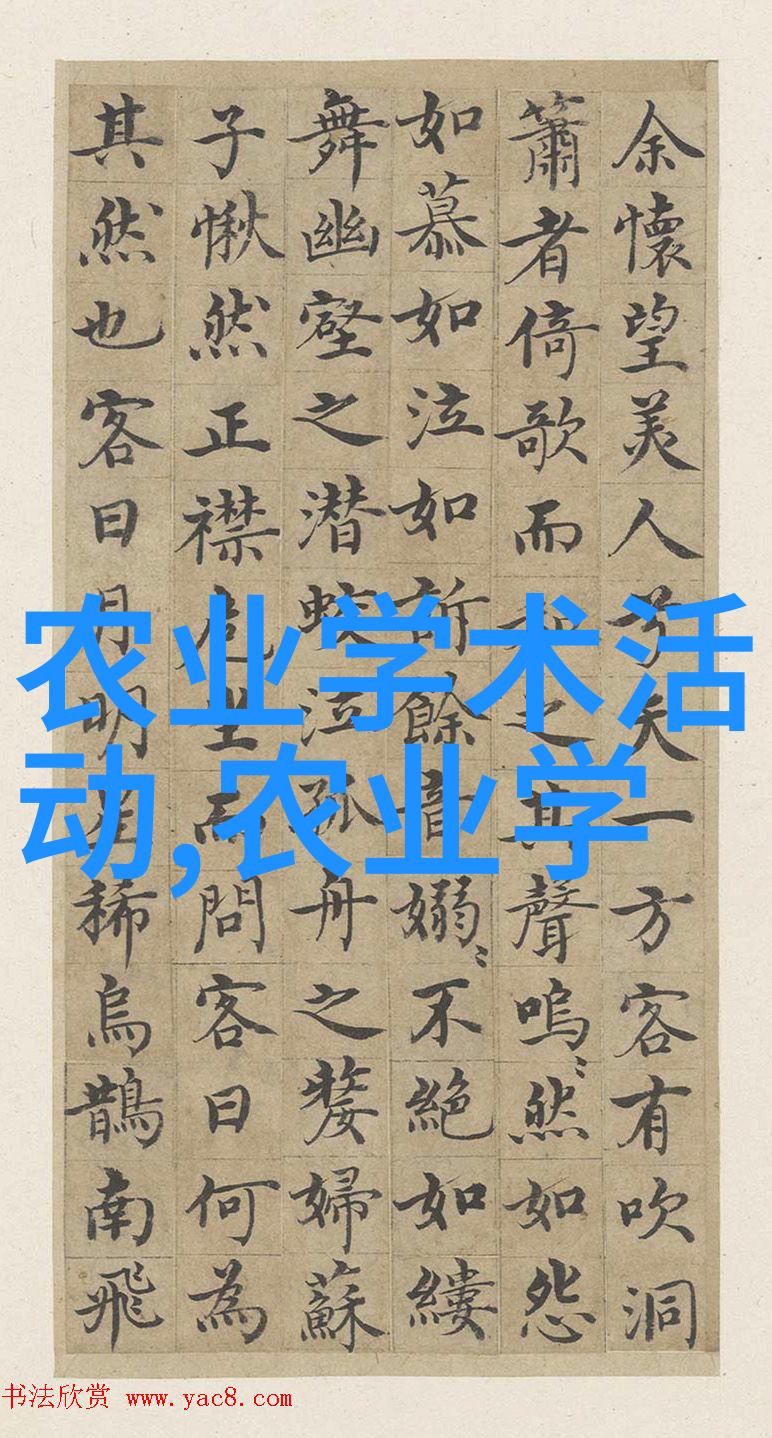 余懷望美人兮天一方客有吹洞
簫者倚歌而和之其聲嗚〻然如怨
如慕如泣如訴餘音嫋〻不絕如縷
舞幽壑之潜蛟泣孤舟之嫠婦蘇
子愀然正襟危坐而問客曰何為
其然也客曰月明星稀烏鵲南飛
农业学术活
动,农业学
书法欣赏 www.yac8.com